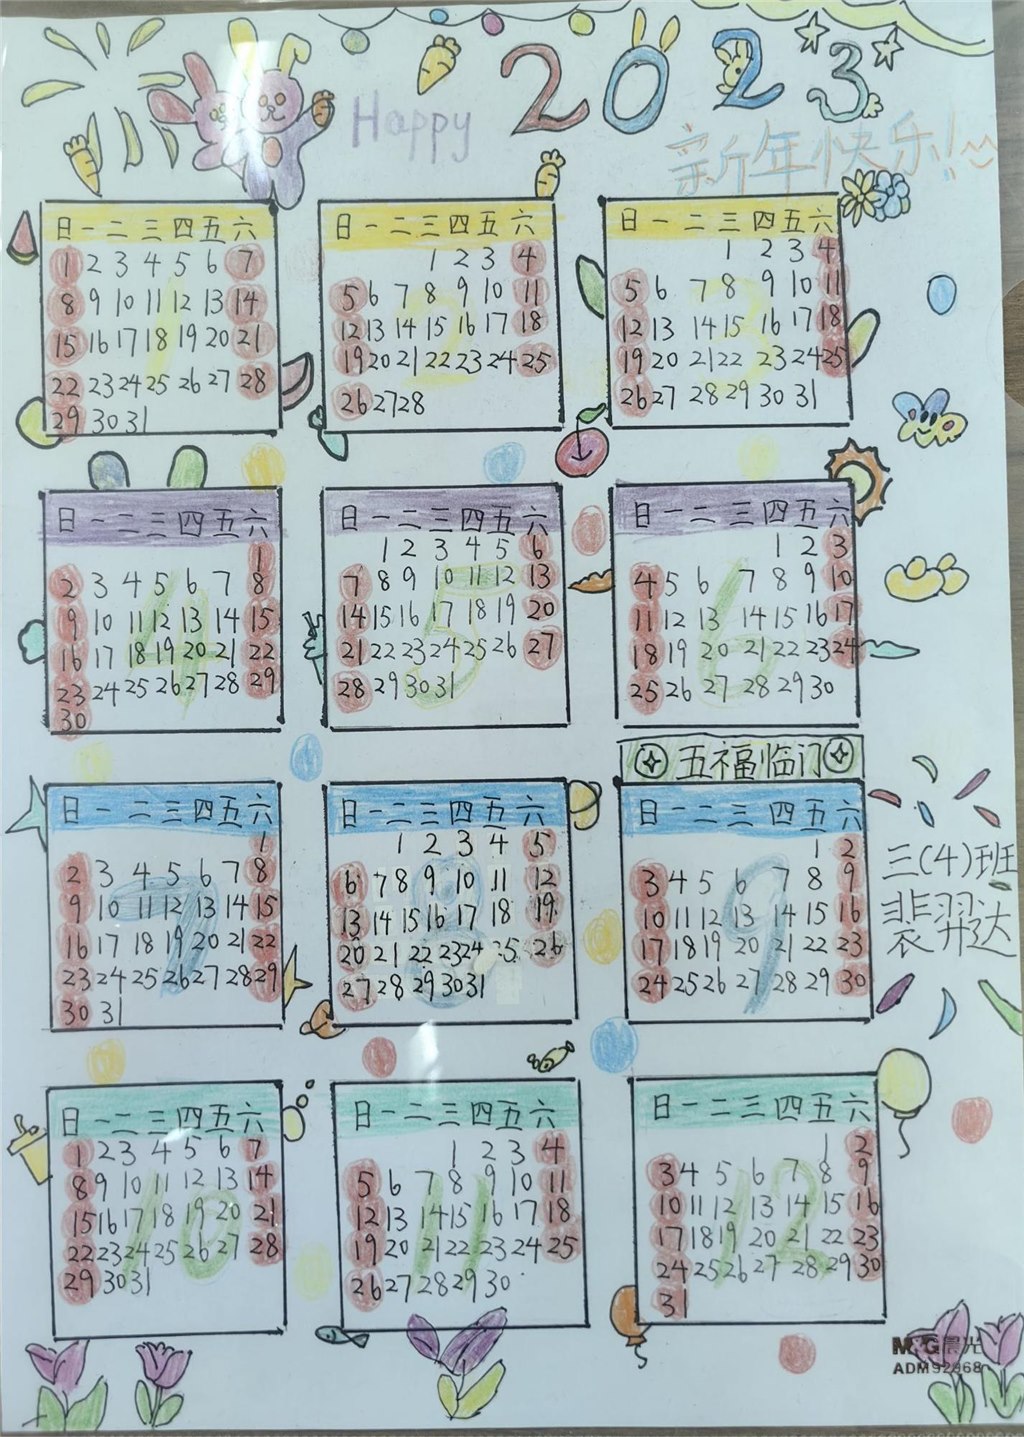 Happy 2023
新年快乐!
日一二三四五六
1 2 3 4 5 6 7
8 9 10 11 12 13 14
15 16 17 18 19 20 21
22 23 24 25 26 27 28
29 30 31
日一二三四五六
1 2 3 4
5 6 7 8 9 10 11
12 13 14 15 16 17 18
19 20 21 22 23 24 25
26 27 28
日一二三四五六
1 2 3 4
5 6 7 8 9 10 11
12 13 14 15 16 17 18
19 20 21 22 23 24 25
26 27 28 29 30 31
日一二三四五六
1
2 3 4 5 6 7 8
9 10 11 12 13 14 15
16 17 18 19 20 21 22
23 24 25 26 27 28 29
30
日一二三四五六
1 2 3 4 5 6
7 8 9 10 11 12 13
14 15 16 17 18 19 20
21 22 23 24 25 26 27
28 29 30 31
日一二三四五六
1 2 3
4 5 6 7 8 9 10
11 12 13 14 15 16 17
18 19 20 21 22 23 24
25 26 27 28 29 30
五福临门
日一二三四五六
1
2 3 4 5 6 7 8
9 10 11 12 13 14 15
16 17 18 19 20 21 22
23 24 25 26 27 28 29
30 31
日一二三四五六
1 2 3 4 5
6 7 8 9 10 11 12
13 14 15 16 17 18 19
20 21 22 23 24 25 26
27 28 29 30 31
日一二三四五六
1 2
3 4 5 6 7 8 9
10 11 12 13 14 15 16
17 18 19 20 21 22 23
24 25 26 27 28 29 30
三(4)班
裴羿达
日一二三四五六
1 2 3 4 5 6 7
8 9 10 11 12 13 14
15 16 17 18 19 20 21
22 23 24 25 26 27 28
29 30 31
日一二三四五六
1 2 3 4
5 6 7 8 9 10 11
12 13 14 15 16 17 18
19 20 21 22 23 24 25
26 27 28 29 30
日一二三四五六
1 2
3 4 5 6 7 8 9
10 11 12 13 14 15 16
17 18 19 20 21 22 23
24 25 26 27 28 29 30
31
M&G晨光
ADM92968